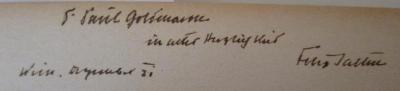 Dr Paul Goldmann
in alter Herzlichkeit
Felix Salten
Wien, Dezember 31